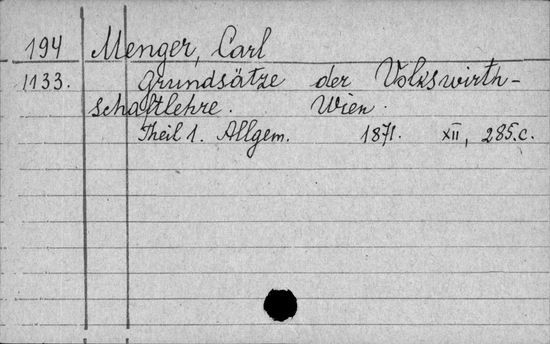 194 Menger, Carl
1133. Grundsätze der Volkswirth-
schaftlehre. Wien.
Theil 1. Allgem. 1871. XII, 285.c.